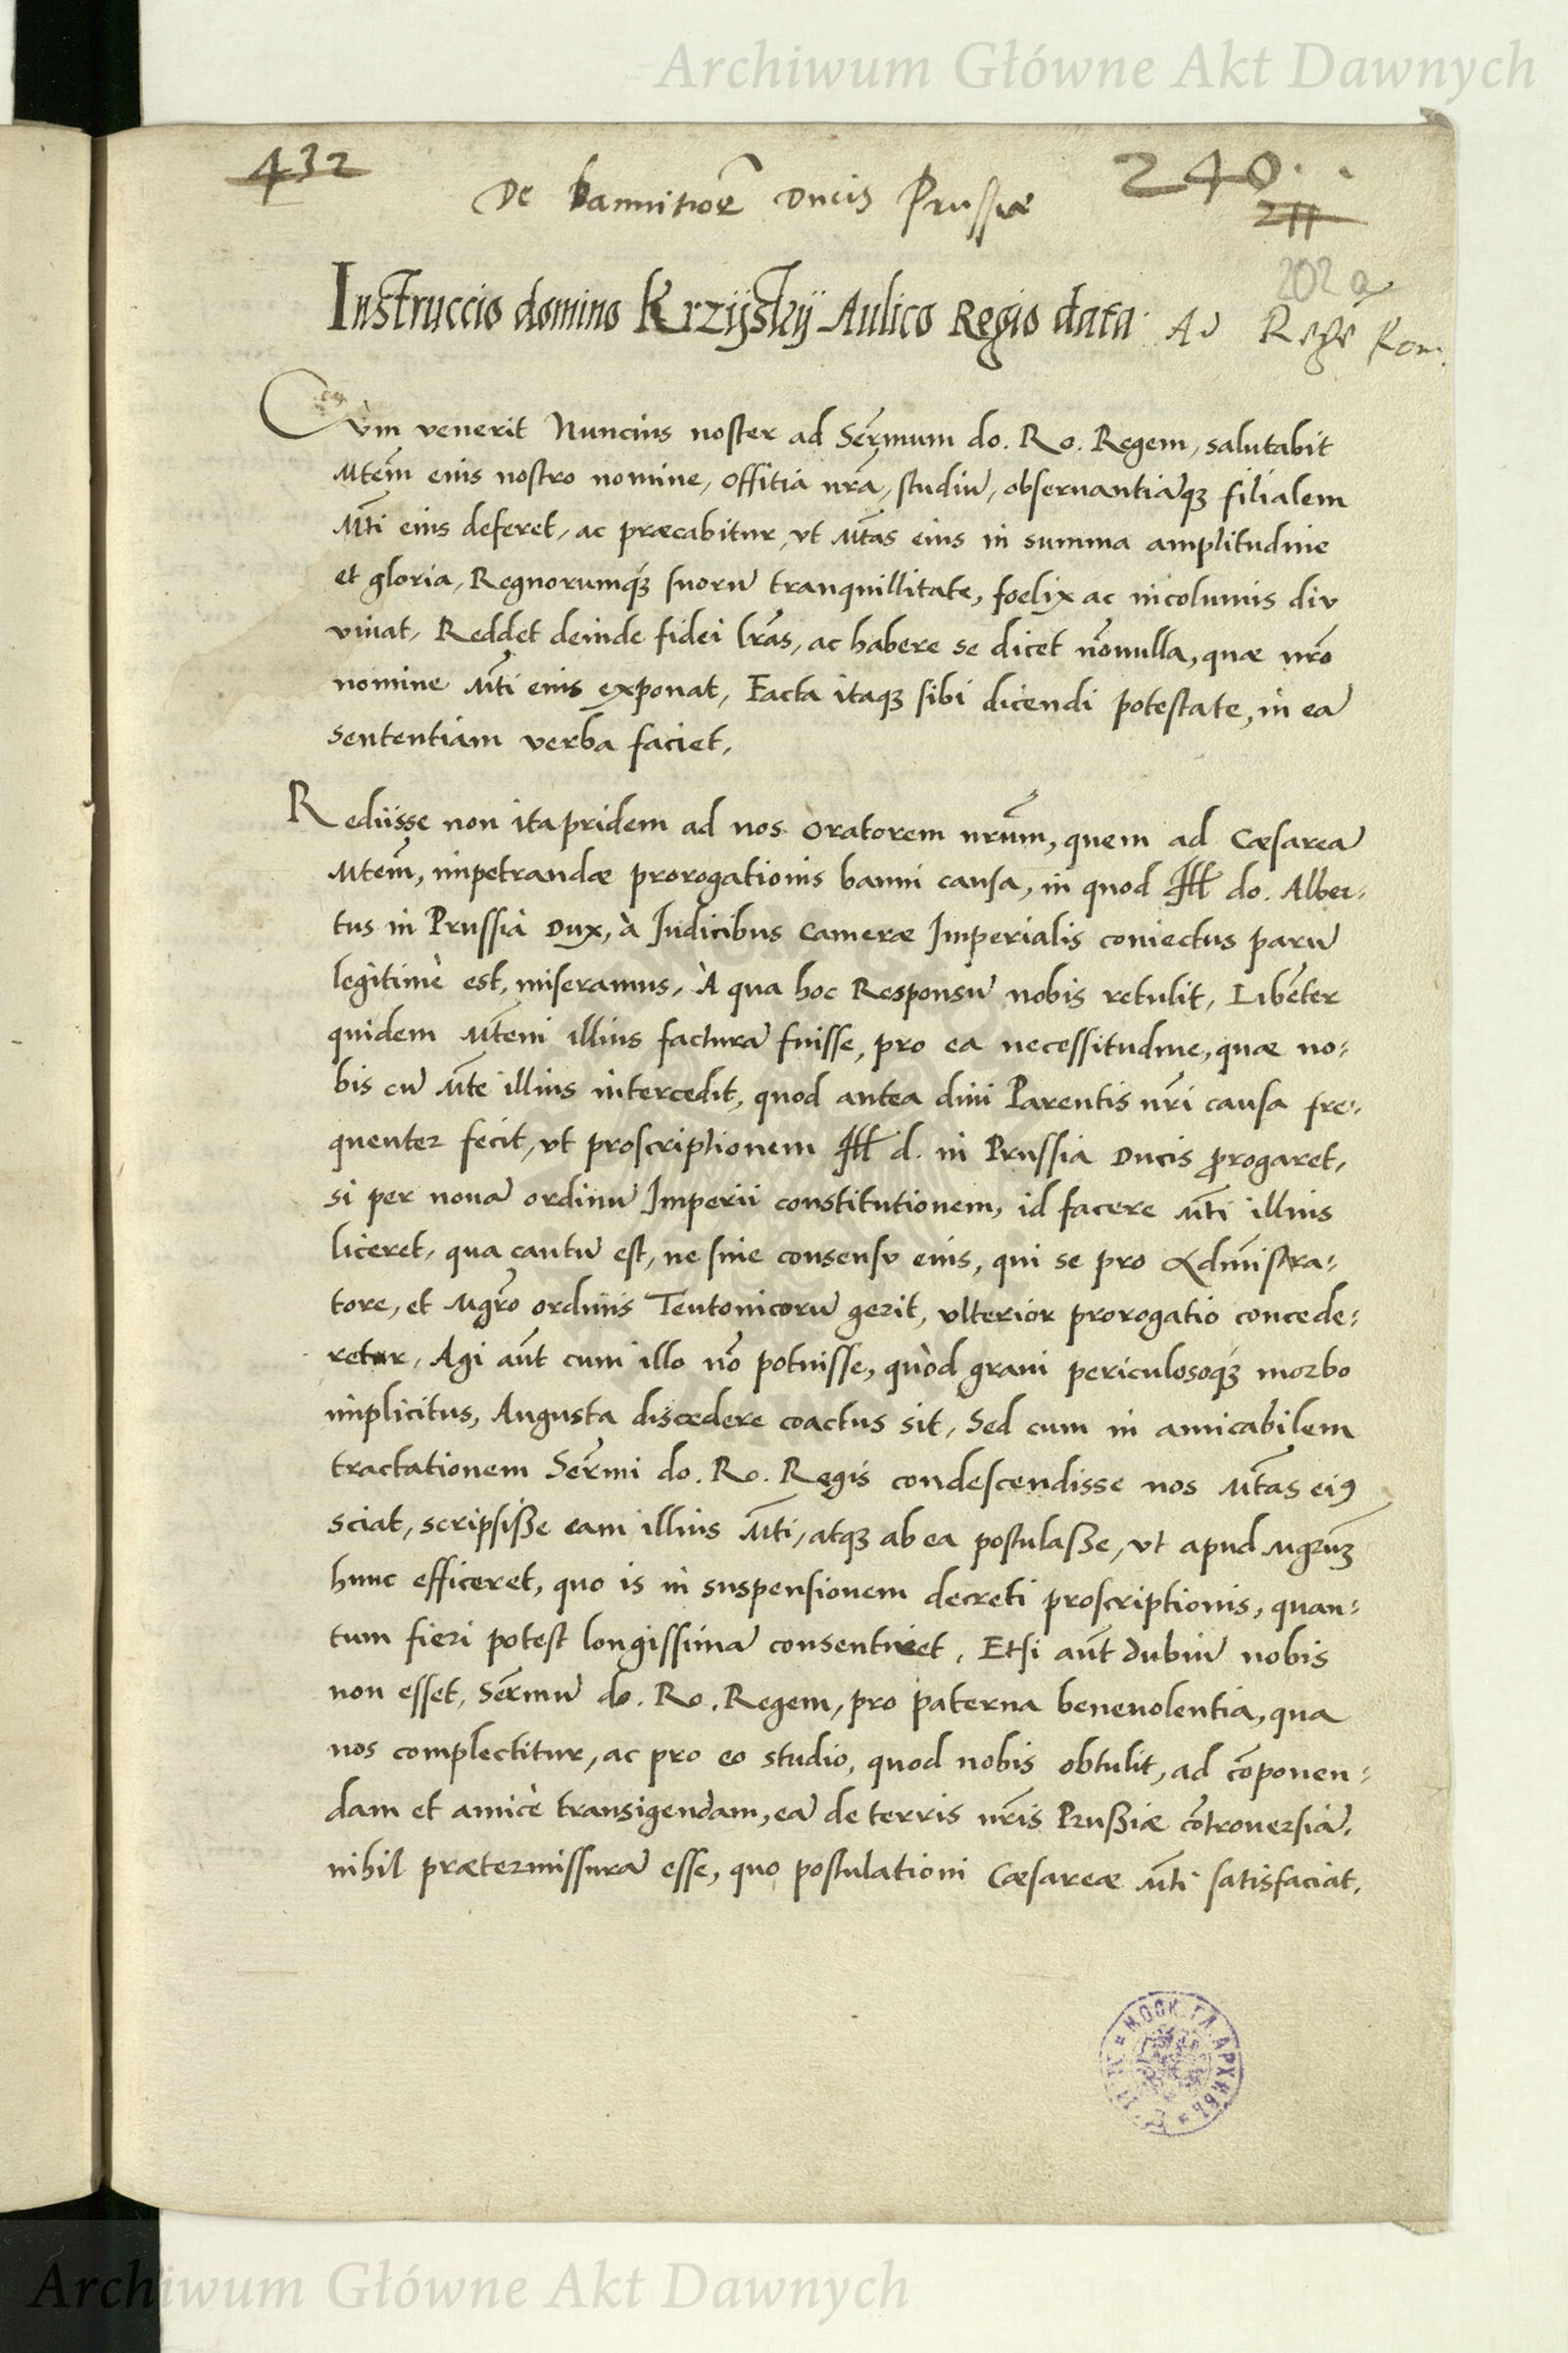 Archiwum Główne Akt Dawnych
432
De bannitioe Ducis Prussiæ
240.
211
202 a
Instruccio domino Krzijskij Aulico Regio data. Ad Regē Rom.
Cùm venerit Nuncius noster ad Serm̄um do. Ro. Regem, salutabit
Mtem̄ eius nostro nomine, offitia nrā, studiū, obseruantiāqꝫ filialem
Mti̅ eius deferet, ac præcabitur, vt Mta̅s eius in summa amplitudine
et gloria, Regnorumqꝫ́ suorū tranquillitate, foelix ac incolumis diu
viuat, Reddet deinde fidei lrās, ac habere se dicet nōnulla, quæ nrō
nomine Mti̅ eius exponat, Facta itaqꝫ sibi dicendi potestate, in eā
sententiam verba faciet,
Rediisse non ita pridem ad nos Oratorem nrūm, quem ad Cæsareā
Mtem̄, impetrandæ prorogationis banni causa, in quod Ill do. Alber-
tus in Prussia Dux, à Iudicibus Cameræ Imperialis coniectus parū
legitimè est, miseramus, À qua hoc Responsū nobis retulit, Libēter
quidem Mte̅m illius facturā fuisse, pro ea necessitudine, quæ no-
bis cū Mte̅ illius intercedit, quod antea diui Parentis nrī causa fre-
quenter fecit, vt proscriptionem Ill d. in Prussia Ducis ꝓrogaret,
si per nouā ordinū Imperii constitutionem, id facere Mti̅ illius
liceret, qua cautū est, ne sine consensu eius, qui se pro Adm̄istra-
tore, et Mgrō ordinis Teutonicorū gerit, vlterior prorogatio concede-
retur, Agi aūt cum illo nō potuisse, quòd graui periculosoqꝫ́ morbo
implicitus, Augusta discedere coactus sit, Sed cum in amicabilem
tractationem Serm̄i do. Ro. Regis condescendisse nos Mta̅s eiꝰ
sciat, scripsiße eam illius Mti̅, atqꝫ ab ea postulaße, vt apud Mgrūm
hunc efficeret, quo is in suspensionem decreti proscriptionis, quan-
tum fieri potest longissimā consentiret, Etsi aūt dubiū nobis
non esset, Serm̄ū do. Ro. Regem, pro paterna beneuolentia, qua
nos complectitur, ac pro eo studio, quod nobis obtulit, ad cōponen-
dam et amicè transigendam, eā de terris nrīs Prußiæ cōtrouersiā,
nihil prætermissurā esse, quo postulationi Cæsareæ Mti̅ satisfaciat,
МОСК. ГЛ. АРХИВЪ
Archiwum Główne Akt Dawnych